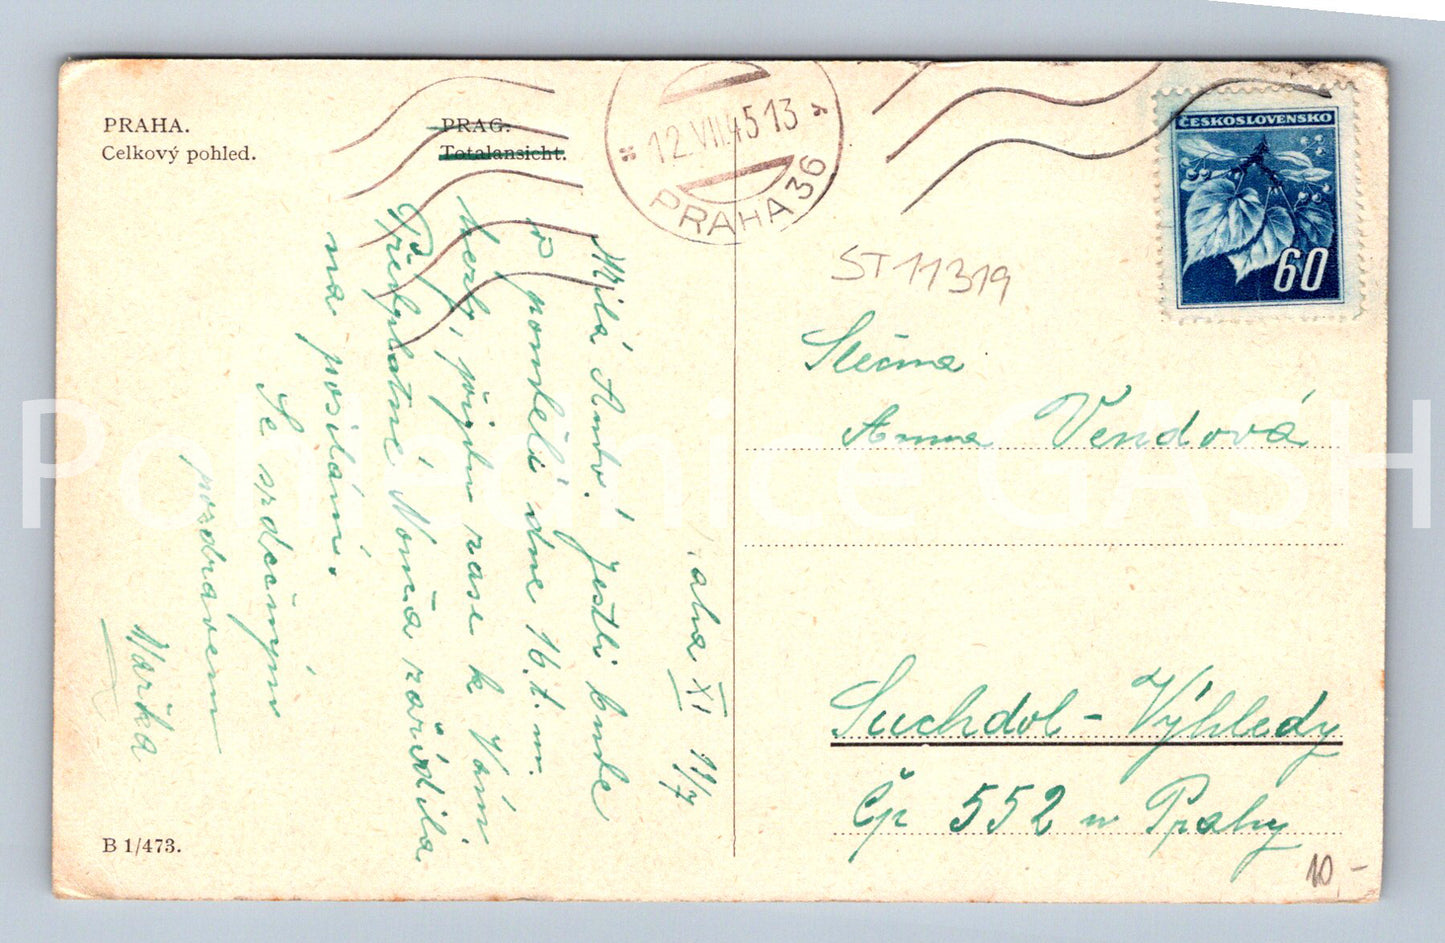 PRAHA.
Celkový pohled.
PRAG.
Totalansicht.
12.VII.45 13
PRAHA 36
ČESKOSLOVENSKO
60
ST 11319
Slečna
Anna Vendová
Suchdol - Výhledy
Čp 552 u Prahy
10,-
XI 11/7
Milá Anno! Jestli bude
v pondělí dne 16. t. m.
hezky, přijdu zase k Vám.
Předplatné Noňa zařídila
na posílání.
Se srdečným
pozdravem
Mařka
B 1/473.
Pohlednice GASH